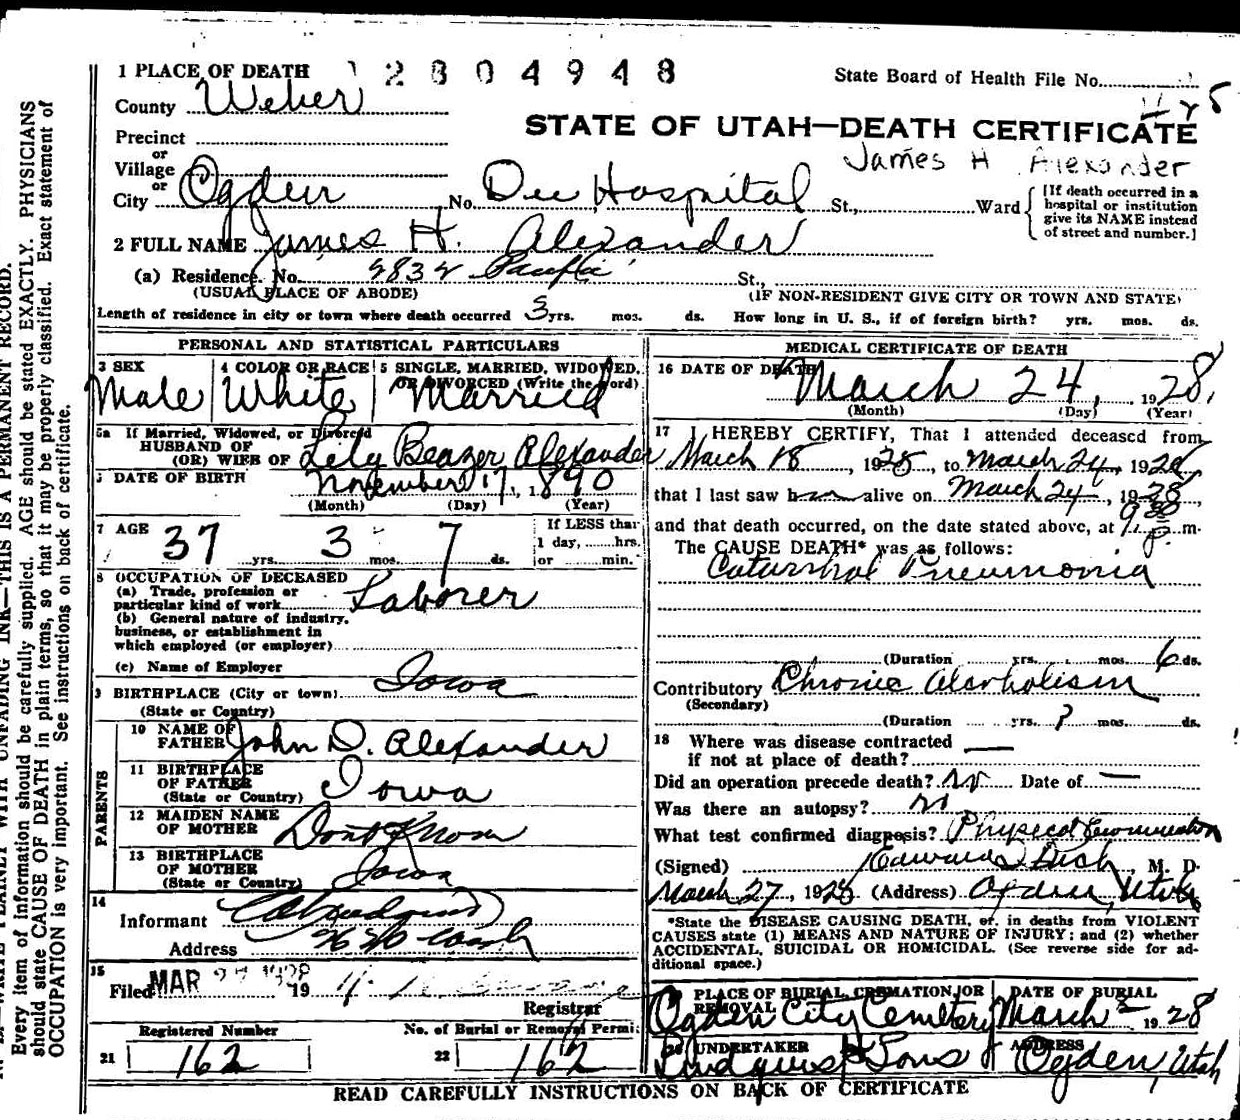 1 PLACE OF DEATH 12804948 State Board of Health File No.
County Weber
STATE OF UTAH—DEATH CERTIFICATE
Precinct
or
James H Alexander
Village
or
City Ogden No. Dee Hospital St., Ward
[If death occurred in a
hospital or institution
give its NAME instead
of street and number.]
2 FULL NAME James H. Alexander
(a) Residence. No. St.,
(USUAL PLACE OF ABODE) (IF NON-RESIDENT GIVE CITY OR TOWN AND STATE)
Length of residence in city or town where death occurred yrs. mos. ds. How long in U. S., if of foreign birth? yrs. mos. ds.
PERSONAL AND STATISTICAL PARTICULARS
3 SEX 4 COLOR OR RACE 5 SINGLE, MARRIED, WIDOWED,
OR DIVORCED (Write the word)
Male White Married
5a If Married, Widowed, or Divorced
HUSBAND OF
(OR) WIFE OF Lily Beazer Alexander
DATE OF BIRTH November 17, 1890
(Month) (Day) (Year)
7 AGE 37 yrs. 3 mos. 7 ds.
If LESS than
1 day, ......hrs.
or ......min.
8 OCCUPATION OF DECEASED
(a) Trade, profession or
particular kind of work Laborer
(b) General nature of industry,
business, or establishment in
which employed (or employer)
(c) Name of Employer
9 BIRTHPLACE (City or town) Iowa
(State or Country)
PARENTS
10 NAME OF
FATHER John D. Alexander
11 BIRTHPLACE
OF FATHER Iowa
(State or Country)
12 MAIDEN NAME
OF MOTHER Dont Know
13 BIRTHPLACE
OF MOTHER Iowa
(State or Country)
14
Informant
Address
15
Filed MAR 27 1928 19
Registrar
Registered Number No. of Burial or Removal Permit
21 162 22 162
MEDICAL CERTIFICATE OF DEATH
16 DATE OF DEATH
March 24, 1928,
(Month) (Day) (Year)
17 I HEREBY CERTIFY, That I attended deceased from
March 18, 1928, to March 24, 1928,
that I last saw him alive on March 24, 1928
and that death occurred, on the date stated above, at 9:30 p. m.
The CAUSE DEATH* was as follows:
Catarrhal Pneumonia
(Duration yrs. mos. 6 ds.
Contributory Chronic Alcoholism
(Secondary)
(Duration yrs. ? mos. ds.
18 Where was disease contracted
if not at place of death?
Did an operation precede death? no Date of —
Was there an autopsy? no
What test confirmed diagnosis? Physical Examination
(Signed) Edward Rich, M. D.
March 27, 1928 (Address) Ogden, Utah
*State the DISEASE CAUSING DEATH, or, in deaths from VIOLENT
CAUSES state (1) MEANS AND NATURE OF INJURY; and (2) whether
ACCIDENTAL, SUICIDAL OR HOMICIDAL. (See reverse side for ad-
ditional space.)
PLACE OF BURIAL, CREMATION, OR
REMOVAL
DATE OF BURIAL
Ogden City Cemetery March 1928
20 UNDERTAKER ADDRESS
Lindquist & Sons Ogden, Utah
READ CAREFULLY INSTRUCTIONS ON BACK OF CERTIFICATE
WRITE PLAINLY WITH UNFADING INK—THIS IS A PERMANENT RECORD.
Every item of information should be carefully supplied. AGE should be stated EXACTLY. PHYSICIANS
should state CAUSE OF DEATH in plain terms, so that it may be properly classified. Exact statement of
OCCUPATION is very important. See instructions on back of certificate.